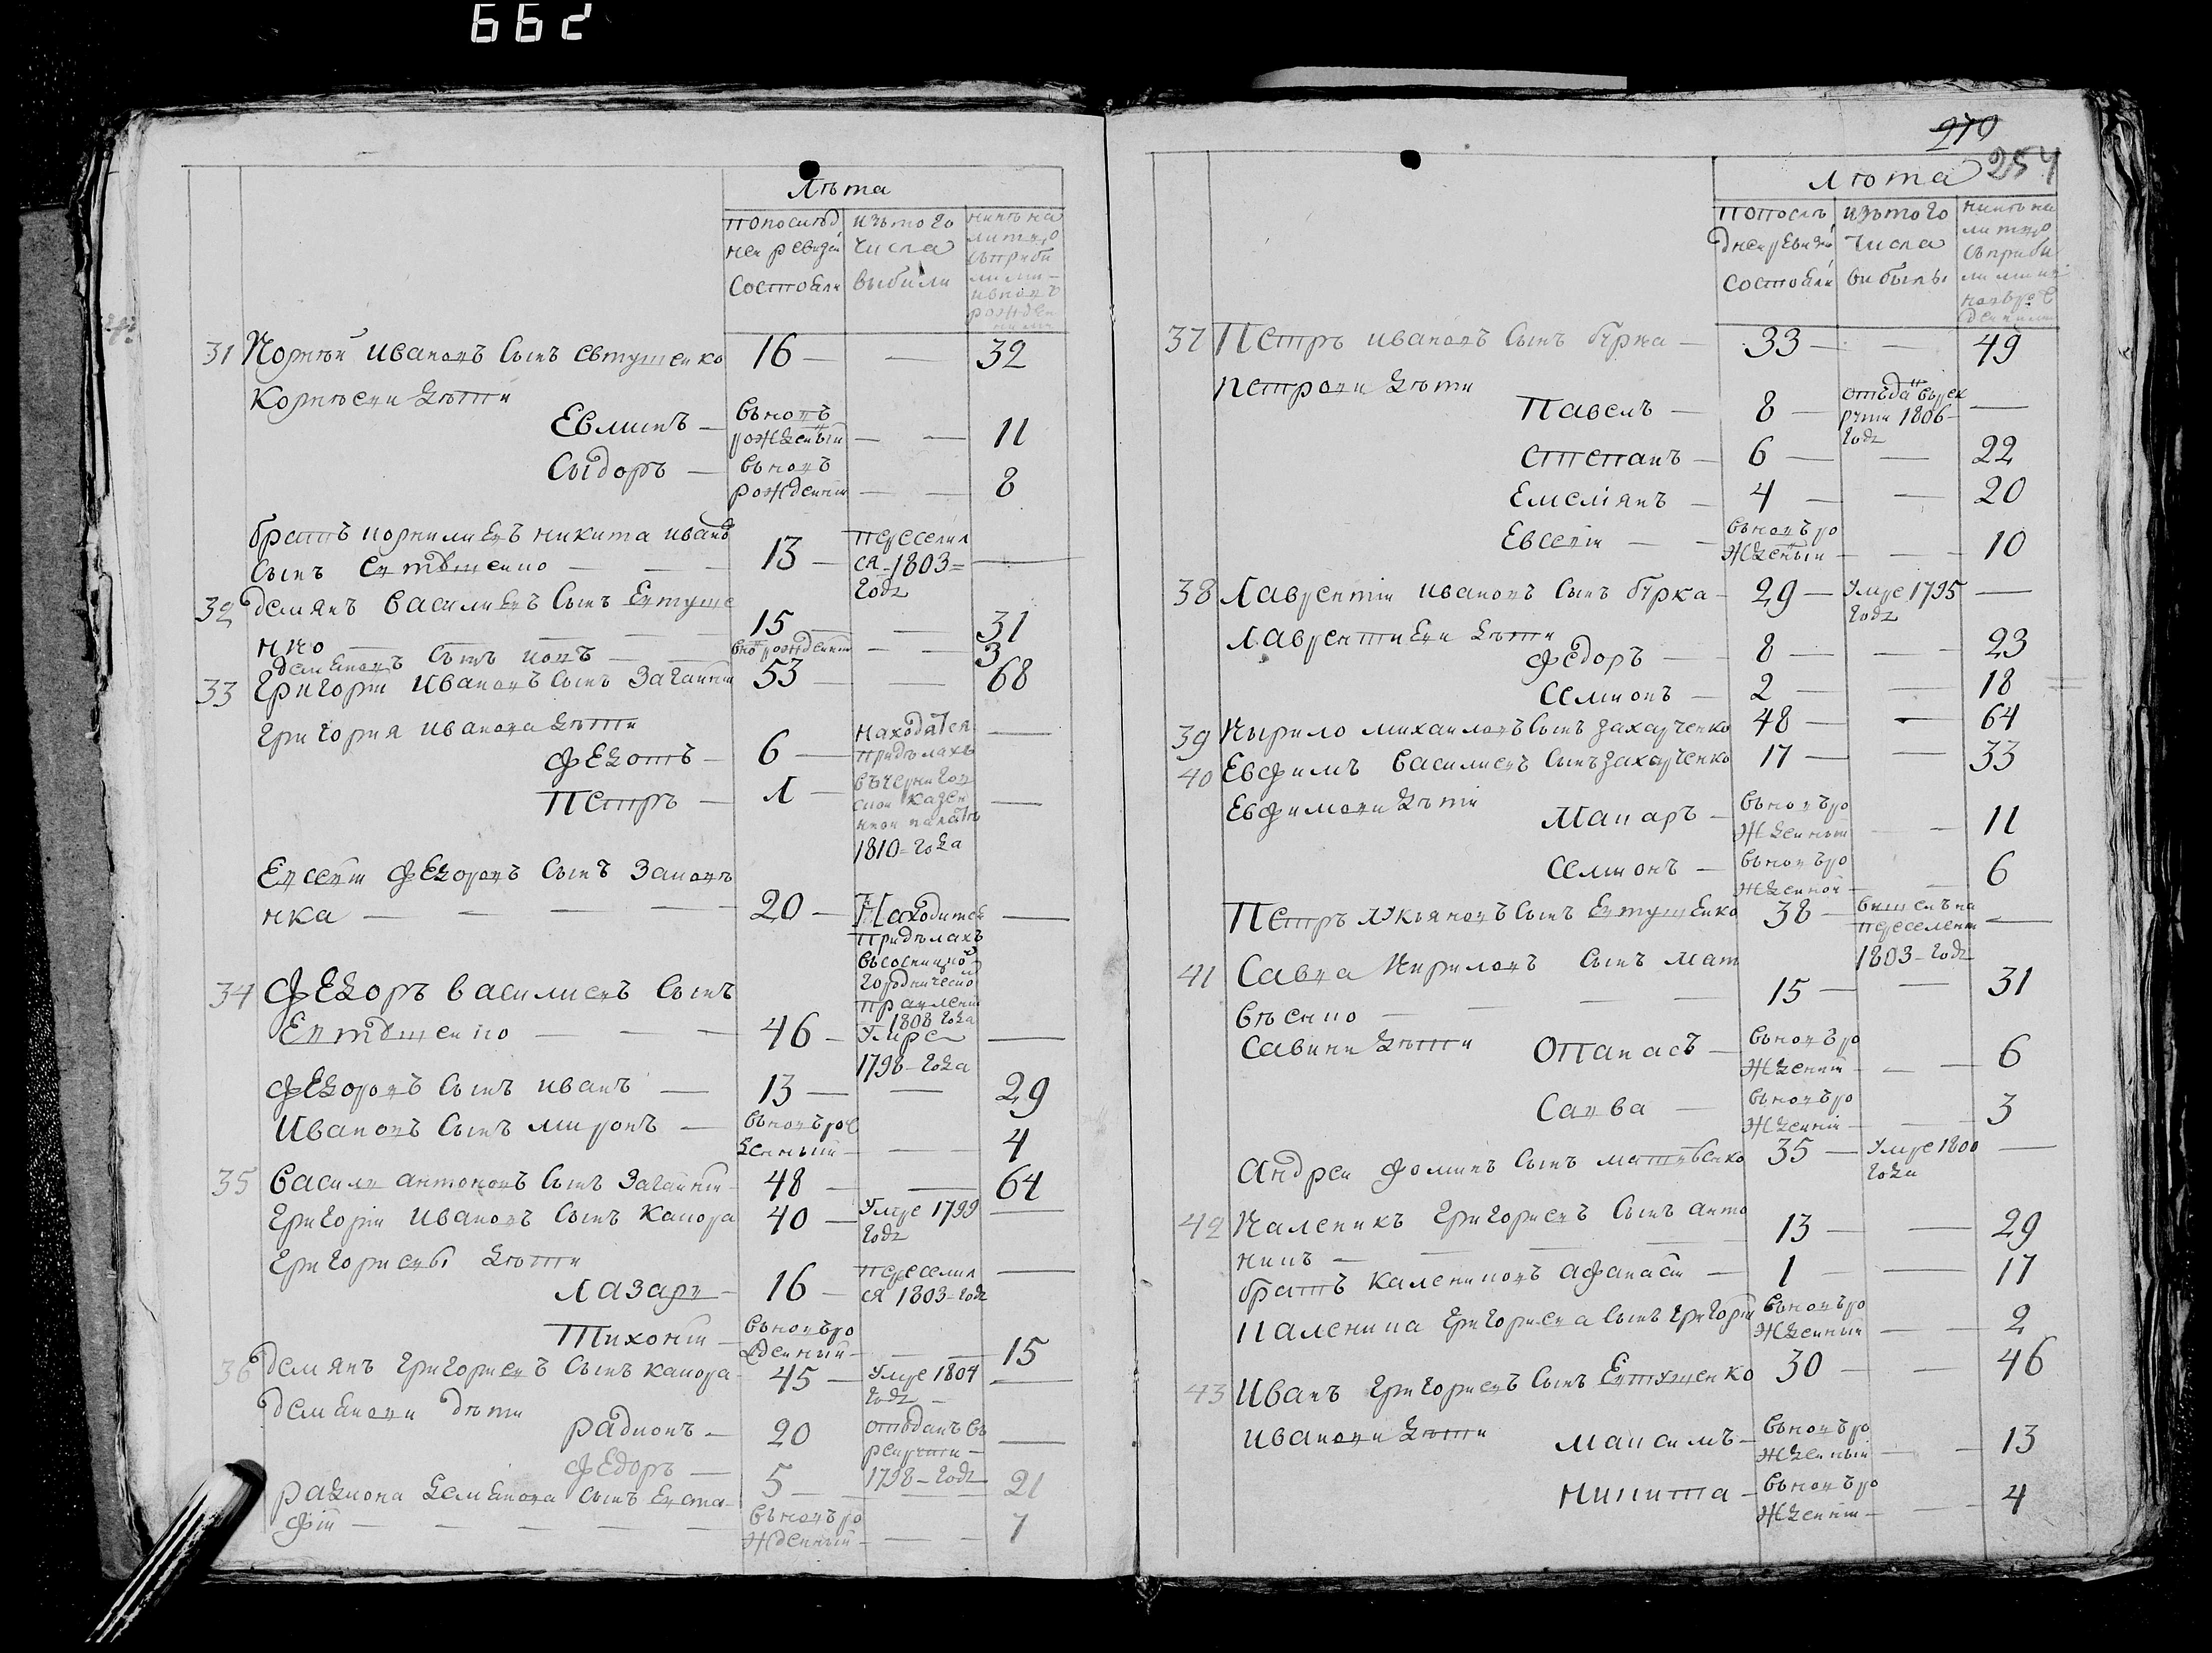 662
Лѣта
попослѣд изътого нинѣ на
неи ревизіи числа лицо
состояли выбили съприбы
лыми
ивновъ
рожден
ными
31 Корнѣй Ивановъ сынъ Евтушенко 16 — — 32
Корнѣеви дѣти
Евлимъ — вьновъ
рожденъій — — 11
Сыдоръ — вьновъ
рожденій — — 8
братъ корнилиевъ никита иванъ
сынъ Евтушенко — — 13 — переселил
ся 1803 = —
годȣ
32 демянъ василиевъ сынъ Евтуше
нко — — — 15 — — 31
демяновъ сынъ — вно рожденій — — 3
33 Григорій Ивановъ сынъ Загайній 53 — — 68
Григория Иванова дѣти
Федотъ — 6 — находатся —
придѣлахъ
Петръ — Л — вьчернигов
ской казен —
ной палатѣ
1810 = года
Евсевій Федоровъ сынъ
нка — — — — 20 — Находится —
придѣлахъ
городническо
правленіи
1808 года
34 Федоръ василиевъ сынъ
Евтȣшенко — — — 46 — Умре —
1798 — года
Федоровъ сынъ иванъ — 13 — — 29
Ивановъ сынъ миронъ — вьновърож
денный — — 4
35 Василь антоновъ сынъ Загайній — 48 — — 64
Григорій Ивановъ сынъ Капора 40 — Умре 1799 —
годȣ
Григориевы дѣти
Лазарь — 16 — переселил —
ся 1803 — годȣ
Тихоній — вьновъро
жденный — — 15
36 демянъ Григориевъ сынъ капора — 45 — Умре 1804 —
годȣ —
демянови дѣти
радионъ — 20 отъданъ въ —
рекрути —
Федоръ — 5 — 1798 — годȣ 21
радиона демянова сынъ Евста —
фій — — — — вьновъро
жденный — — 7
270
254
Лѣта
попослѣ изътого нинѣ на
дней ревизіи числа лицо
состояли вибыли съприбы
лыми
37 Петръ ивановъ сынъ бȣрка — 33 — — 49
петрови дѣти
Павелъ — 8 — отъданъ въ рек
рути 1806 — —
годȣ
степанъ — 6 — — 22
Емеліянъ — 4 — — 20
Евсевій — — вьновъро
жденый — — 10
38 Лаврентій ивановъ сынъ бȣрка — 29 — Умре 1795 —
годȣ
лаврентиеви дѣти
Федоръ — 8 — — 23
Семионъ — 2 — — 18
39 Кырило михаиловъ сынъ захарченко 48 — — 64
40 Евфимъ василиевъ сынъ захарченко 17 — — 33
Евфимови дѣти
Макаръ — вьновъро
жденный — — 11
Семионъ — вьновъро
жденной — — 6
Петръ лȣкьяновъ сынъ Евтушенко 38 — вишелъ на
переселеніи —
1803 — годȣ
41 Савва Кириловъ сынъ мат
вѣенко — — — — 15 — — 31
Савини дѣти Опанасъ — вьновъро
жденій — — 6
Савва — вьновъро
жденій — — 3
Андреи фоминъ сынъ матвѣенко 35 — Умре 1800 —
года
42 Каленикъ Григориевъ сынъ анто
никъ — — — — 13 — — 29
братъ калениковъ афанасій — 1 — — 17
Каленика Григориева сынъ григорій вьновъро
жденный — — 2
43 Иванъ Григориевъ сынъ Евтушенко 30 — — 46
Иванови дѣти максимъ — вьновъро
жденный — — 13
никита — вьновъро
жденій — — 4